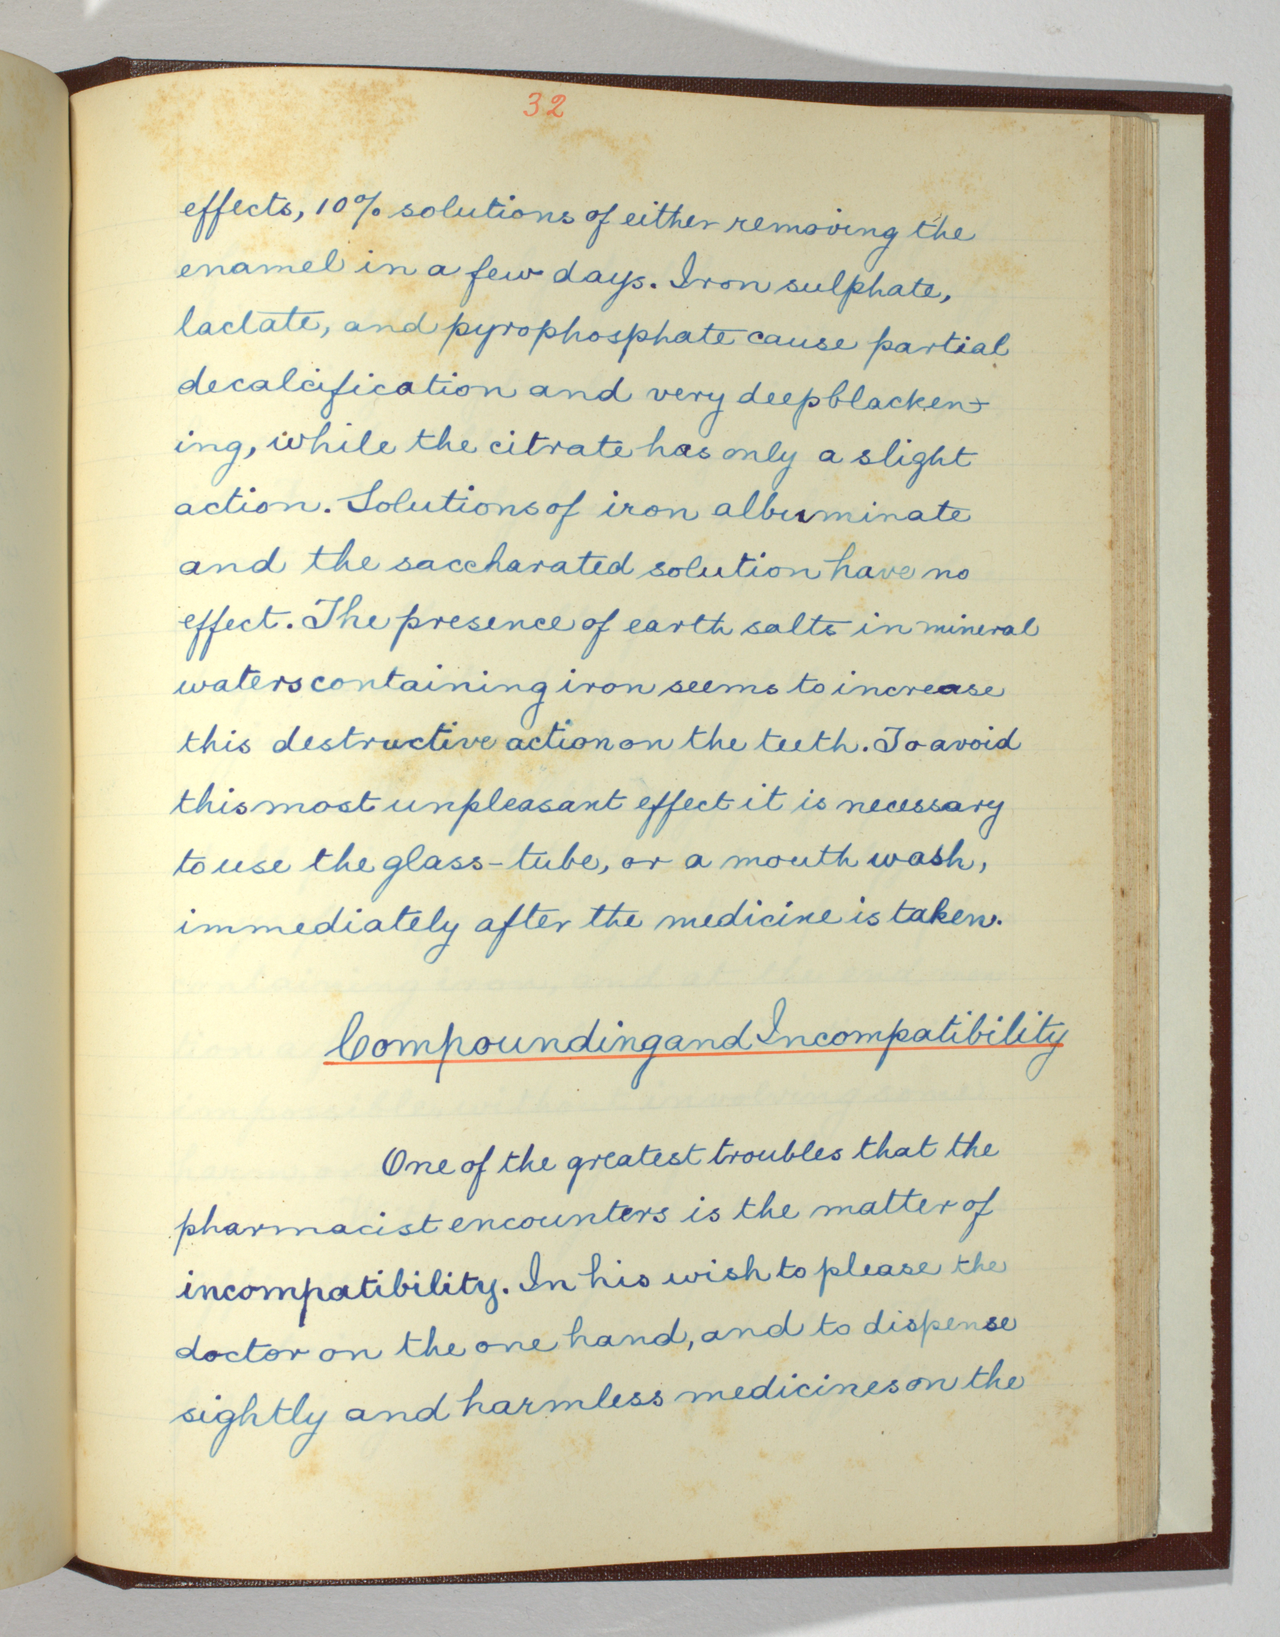 32
effects, 10% solutions of either removing the
enamel in a few days. Iron sulphate,
lactate, and pyrophosphate cause partial
decalcification and very deep blacken-
ing, while the citrate has only a slight
action. Solutions of iron albuminate
and the saccharated solution have no
effect. The presence of earth salts in mineral
waters containing iron seems to increase
this destructive action on the teeth. To avoid
this most unpleasant effect it is necessary
to use the glass-tube, or a mouth wash,
immediately after the medicine is taken.
Compounding and Incompatibility
One of the greatest troubles that the
pharmacist encounters is the matter of
incompatibility. In his wish to please the
doctor on the one hand, and to dispense
sightly and harmless medicines on the